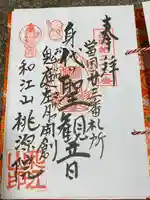 奉拝
當国廿二番札所
身代聖観世音
鬼庭左月開創
和江山桃源院